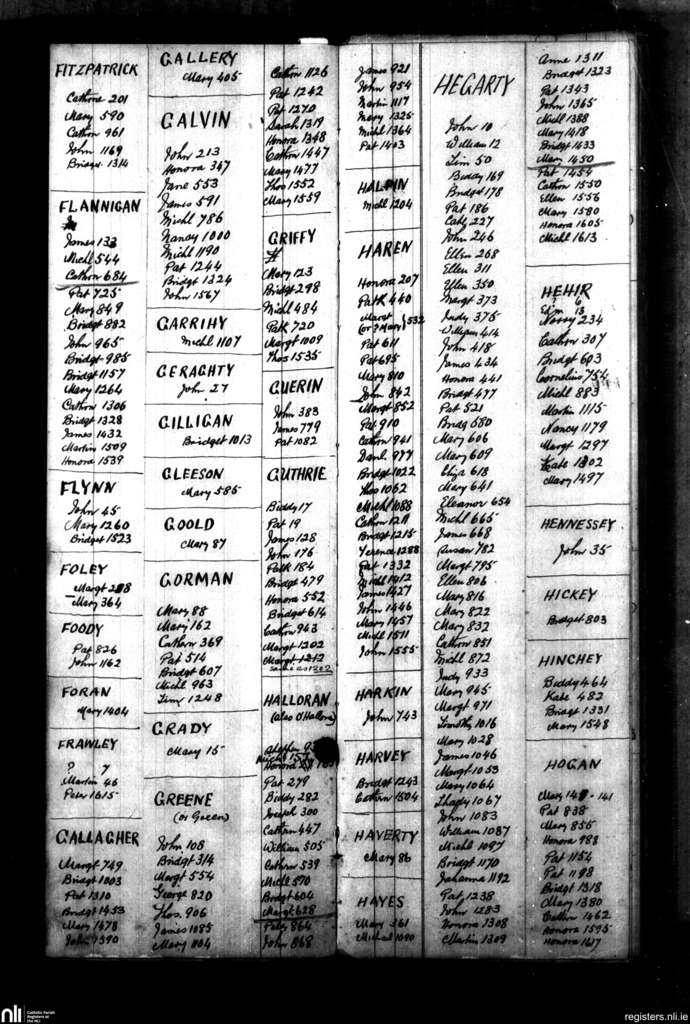 FITZPATRICK
Cathrn 201
Mary 590
Cathrn 961
John 1169
Bridget 1314
FLANNIGAN
James 133
Michl 544
Cathrn 684
Pat 725
Mary 849
Bridgt 882
John 965
Bridgt 985
Bridgt 1157
Mary 1264
Cathrn 1306
Bridgt 1328
James 1432
Martin 1509
Honora 1539
FLYNN
John 45
Mary 1260
Bridget 1523
FOLEY
Margt 298
Mary 364
FOODY
Pat 826
John 1162
FORAN
Mary 1404
FRAWLEY
? 7
Martin 46
Peter 1615
GALLAGHER
Margt 749
Bridgt 1003
Pat 1310
Bridgt 1453
Mary 1478
John 1590
GALLERY
Mary 405
GALVIN
John 213
Honora 347
Jane 553
James 591
Michl 786
Nancy 1000
Michl 1190
Pat 1244
Bridgt 1324
John 1567
GARRIHY
Michl 1107
GERAGHTY
John 27
GILLIGAN
Bridget 1013
GLEESON
Mary 585
GOOLD
Mary 87
GORMAN
Mary 88
Mary 162
Cathern 369
Pat 514
Bridgt 607
Michl 963
Tim 1248
GRADY
Mary 15
GREENE
(or Green)
John 108
Bridgt 314
Margt 554
George 820
Thos. 906
James 1085
Mary 1104
Cathrn 1126
Pat 1242
Pat 1270
Sarah 1319
Honora 1348
Cathrn 1447
Mary 1477
Thos 1552
Mary 1559
GRIFFY
Mary 123
Bridgt 298
Michl 484
Patk 720
Margt 1009
Thos 1535
GUERIN
John 383
James 779
Pat 1082
GUTHRIE
Biddy 17
Pat 19
James 128
John 176
Patk 184
Bridgt 479
Honora 552
Bridget 614
Cathrn 943
Margt 1202
Margt 1212
same as 1202
HALLORAN
(also O'Hallora)
Honora
Pat 279
Biddy 282
Joseph 300
Cathrn 447
William 505
Cathrn 539
Michl 570
Bridgt 604
Margt 628
Patk 864
John 868
James 921
John 954
Martin 1117
Mary 1325
Michl 1364
Pat 1403
HALPIN
Michl 1204
HAREN
Honora 207
Patk 440
Margt
(or ? Mary) 532
Pat 611
Pat 695
Mary 810
John 842
Margt 852
Pat 910
Cathrn 941
Danl. 977
Bridgt 1022
Thos 1062
Michl 1088
Cathrn 1211
Bridgt 1215
Terence 1288
Pat 1332
Michl 1412
James 1427
John 1446
Mary 1457
Michl 1511
John 1555
HARKIN
John 743
HARVEY
Bridgt 1243
Cathrn 1504
HAVERTY
Mary 86
HAYES
Mary 361
Michael 1090
HEGARTY
John 10
William 12
Tim 50
Biddy 169
Bridget 178
Pat 186
Cathy 227
John 246
Ellen 268
Ellen 311
Ellen 350
Margt 373
Judy 375
William 414
John 418
James 434
Honora 441
Bridgt 477
Pat 521
Bridg 580
Mary 606
Mary 609
Eliza 618
Mary 641
Eleanor 654
Michl 665
James 668
Susan 782
Margt 795
Ellen 806
Mary 816
Mary 822
Mary 832
Cathrn 851
Michl 872
Judy 933
Mary 945
Margt 971
Timothy 1016
Mary 1028
James 1046
Margt 1053
Mary 1064
1067
John 1083
William 1087
Michl 1097
Bridgt 1170
Johanna 1192
Pat 1238
John 1283
Honora 1308
Martin 1309
Anne 1311
Bridgt 1323
Pat 1343
John 1365
Michl 1388
Mary 1418
Bridgt 1433
Mary 1450
Pat 1454
Cathrn 1550
Ellen 1556
Mary 1580
Honora 1605
Michl 1613
HEHIR
? 6
13
Nancy 234
Cathrn 307
Bridgt 603
Cornelius 754
Michl 883
Martin 1115
Nancy 1179
Margt 1297
Kate 1302
Mary 1497
HENNESSEY
John 35
HICKEY
Bridget 803
HINCHEY
Biddy 464
Kate 482
Bridgt 1331
Mary 1548
HOGAN
Mary 141
Pat 838
Mary 855
Honora 988
Pat 1154
Pat 1198
Bridgt 1318
Mary 1380
Cathrn 1462
Honora 1595
Honora 1617
nli
Catholic Parish
Registers at
the NLI
registers.nli.ie